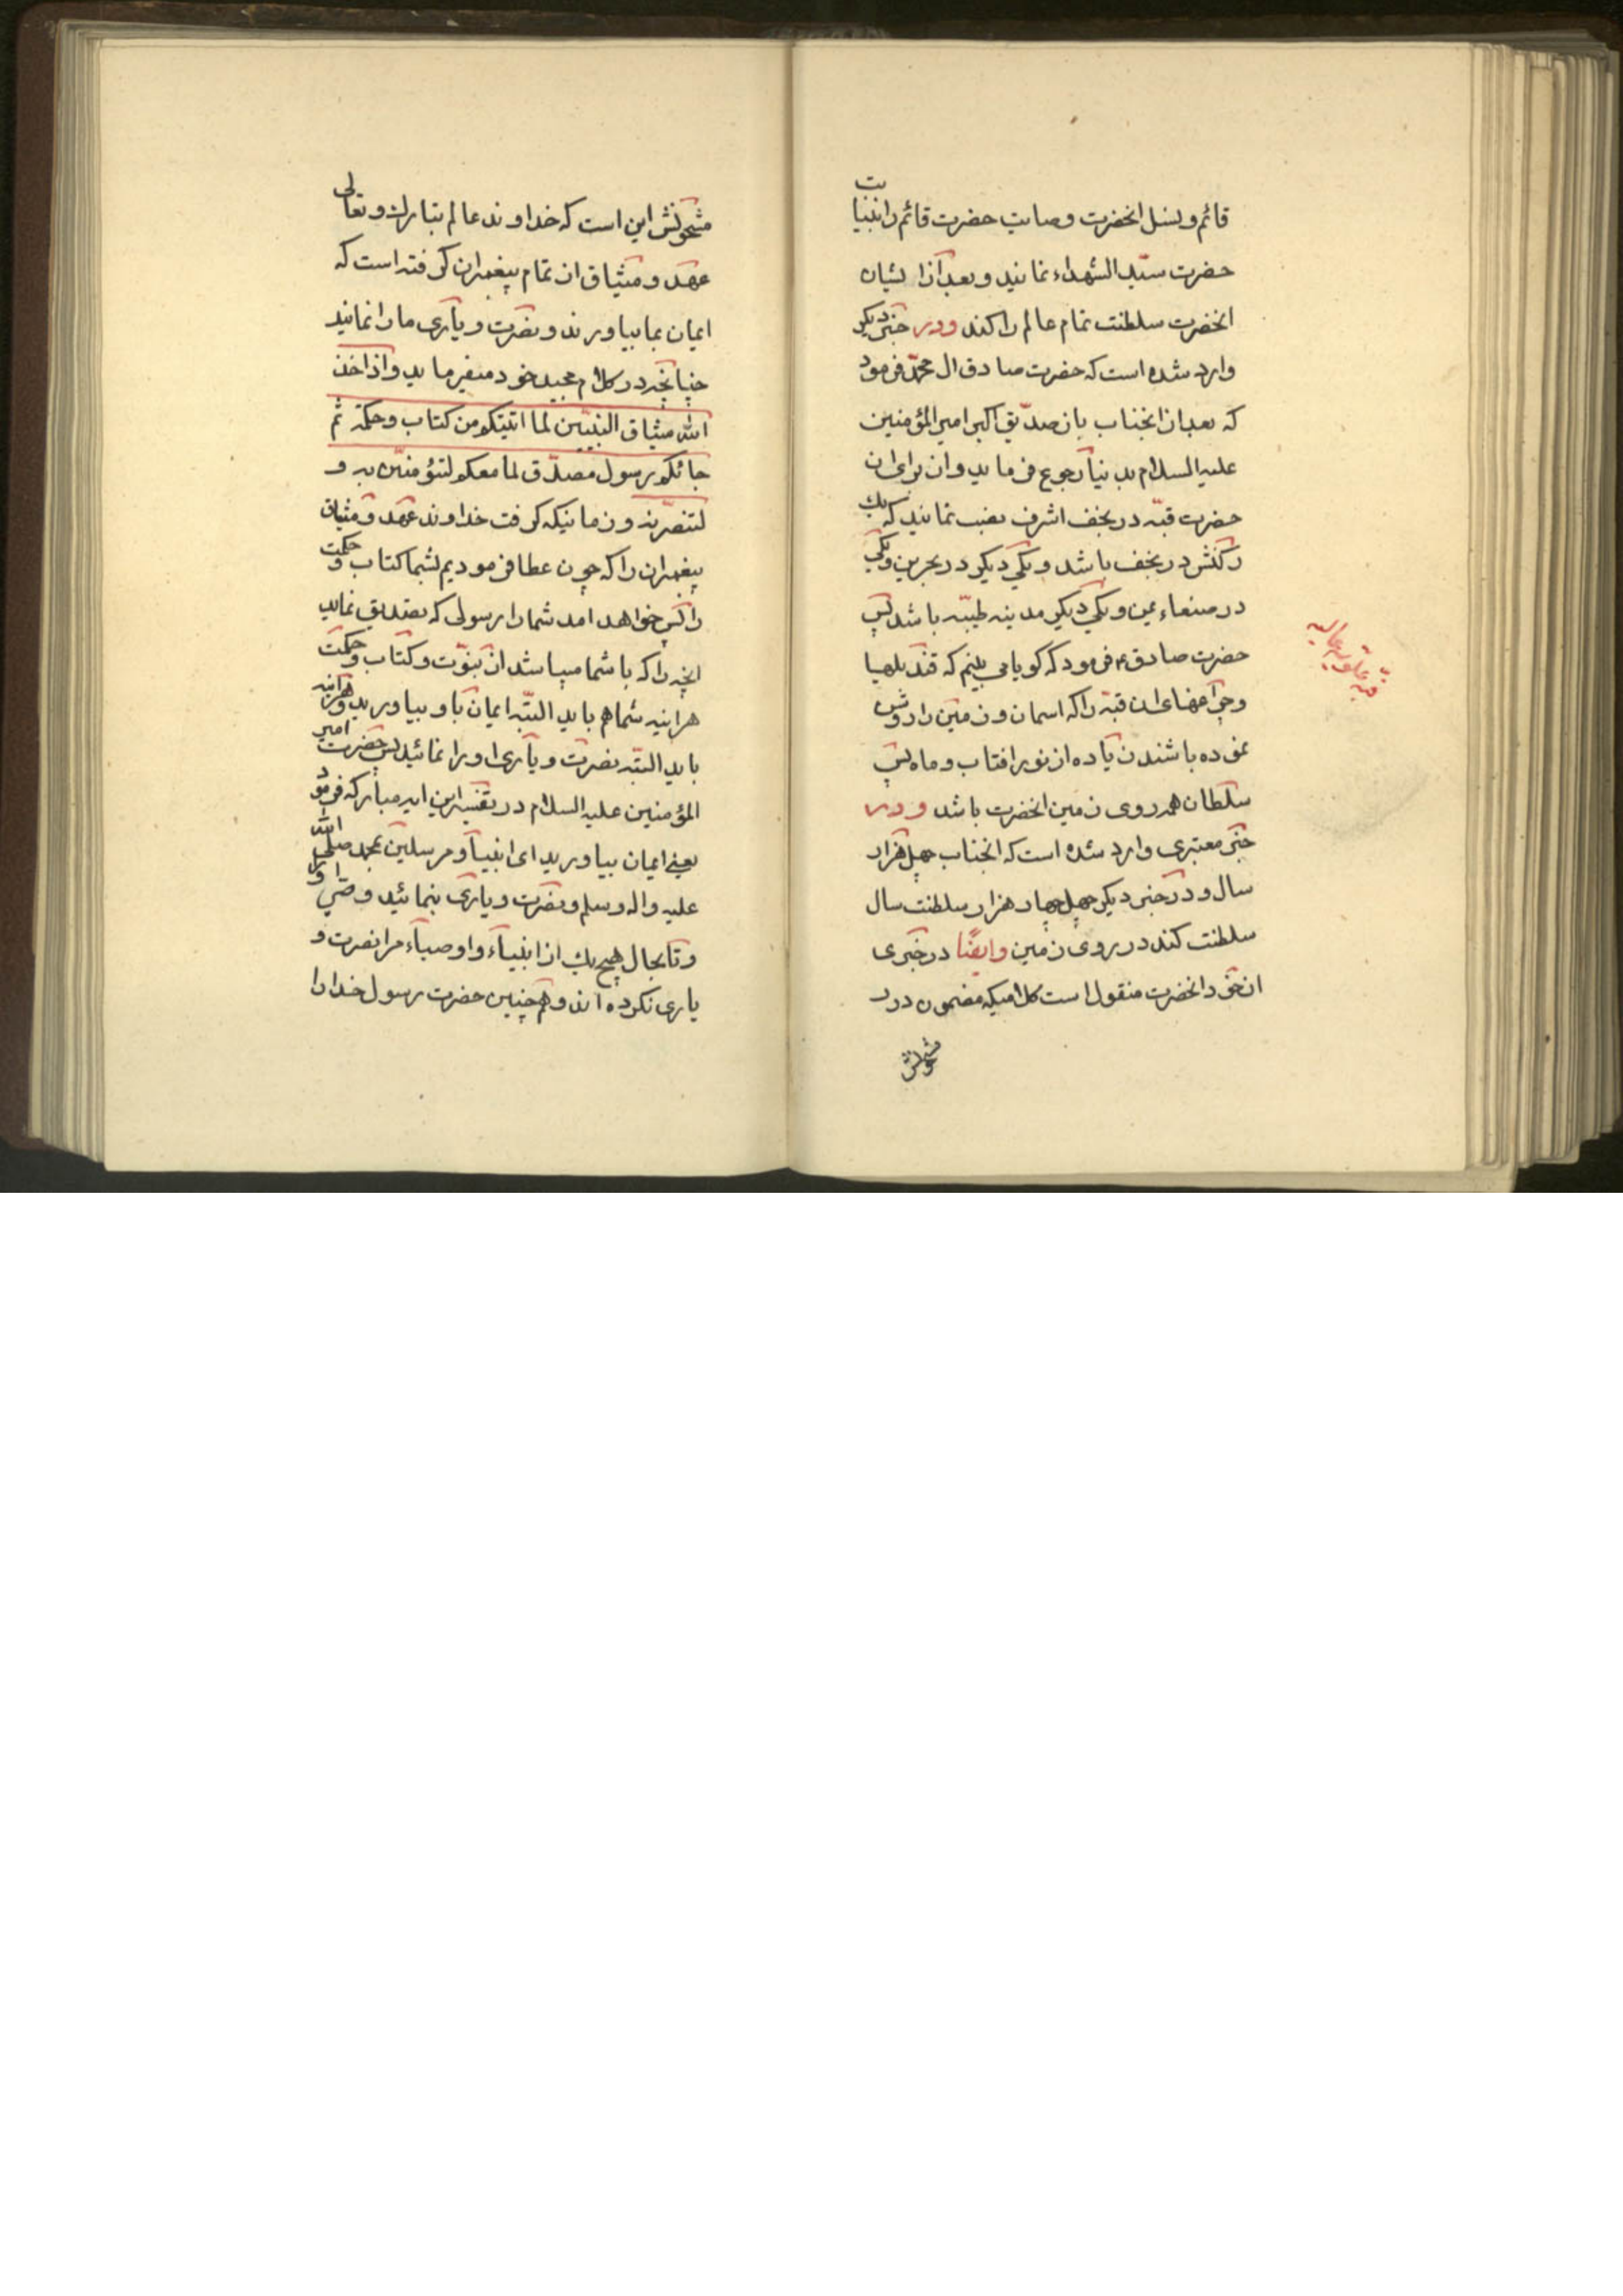 قائم و لنسل انحضرت وصایت حضرت قائم را بنیابت
حضرت سیّد الشهداء نمایند و بعد از ایشان
انحضرت سلطنت تمام عالم را کند و در خبر دیکر
وارد شده است که حضرت صادق ال محمّد فرمود
که بعد از انجناب بان صدّیق اکبر امیر المؤمنین
علیه السلام بدنیا رجوع فرماید و ان برای ان
حضرت قبّه در نجف اشرف نصب نمایند که یك
رکنش در نجف باشد و یکی دیکر در بحرین و یکی
در صنعاء یمن و یکی دیکر مدینه طیّبه باشد پس
حضرت صادق ع فرمود که کویا می بینم که قندیلها
و چراغهای ان قبّه را که اسمان و زمین را روشن
نموده باشند زیاده از نور افتاب و ماه پس
سلطان همه روی زمین انحضرت باشد و در
خبر معتبری وارد شده است که انجناب چهل هزار
سال و در خبر دیکر چهل چهار هزار سلطنت سال
سلطنت کند در روی زمین وایضًا در خبری
از خود انحضرت منقول است کلامیکه مضمون درر
مشحونش
قبه
مشحونش این است که خداوند عالم تبارك و تعالی
عهد و میثاق از تمام پیغمبران کرفته است که
ایمان بما بیاورند و نصرت و یاری ما را نمایند
چنانچه در کلام مجید خود میفرماید واذ اخذ
الله میثاق النبیّین لما اتیتکم من کتاب وحکمة ثم
جائکم رسول مصدّق لما معکم لتؤمننّ به و
لتنصرنّه و زمانیکه کرفت خداوند عهد و میثاق
پیغمبران را که چون عطا فرمودیم بشما کتاب و حکمت
را پس خواهد امد شما را رسولی که تصدیق نماید
انچه را که با شما میباشد از نبوّت و کتاب و حکمت
هراینه شما هم باید البتّه ایمان باو بیاورید و هراینه
باید البتّه نصرت و یاری او را نمائید پس حضرت امیر
المؤمنین علیه السلام در تفسیر این ایه مبارکه فرمود
یعنی ایمان بیاورید ای انبیآ و مرسلین بمحمد صلی الله
علیه واله وسلم و نصرت و یاری بنمائید وصی او را
و تا بحال هیچ یك از انبیآء و اوصیآء مرا نصرت و
یاری نکرده اند و همچنین حضرت رسول خدا را